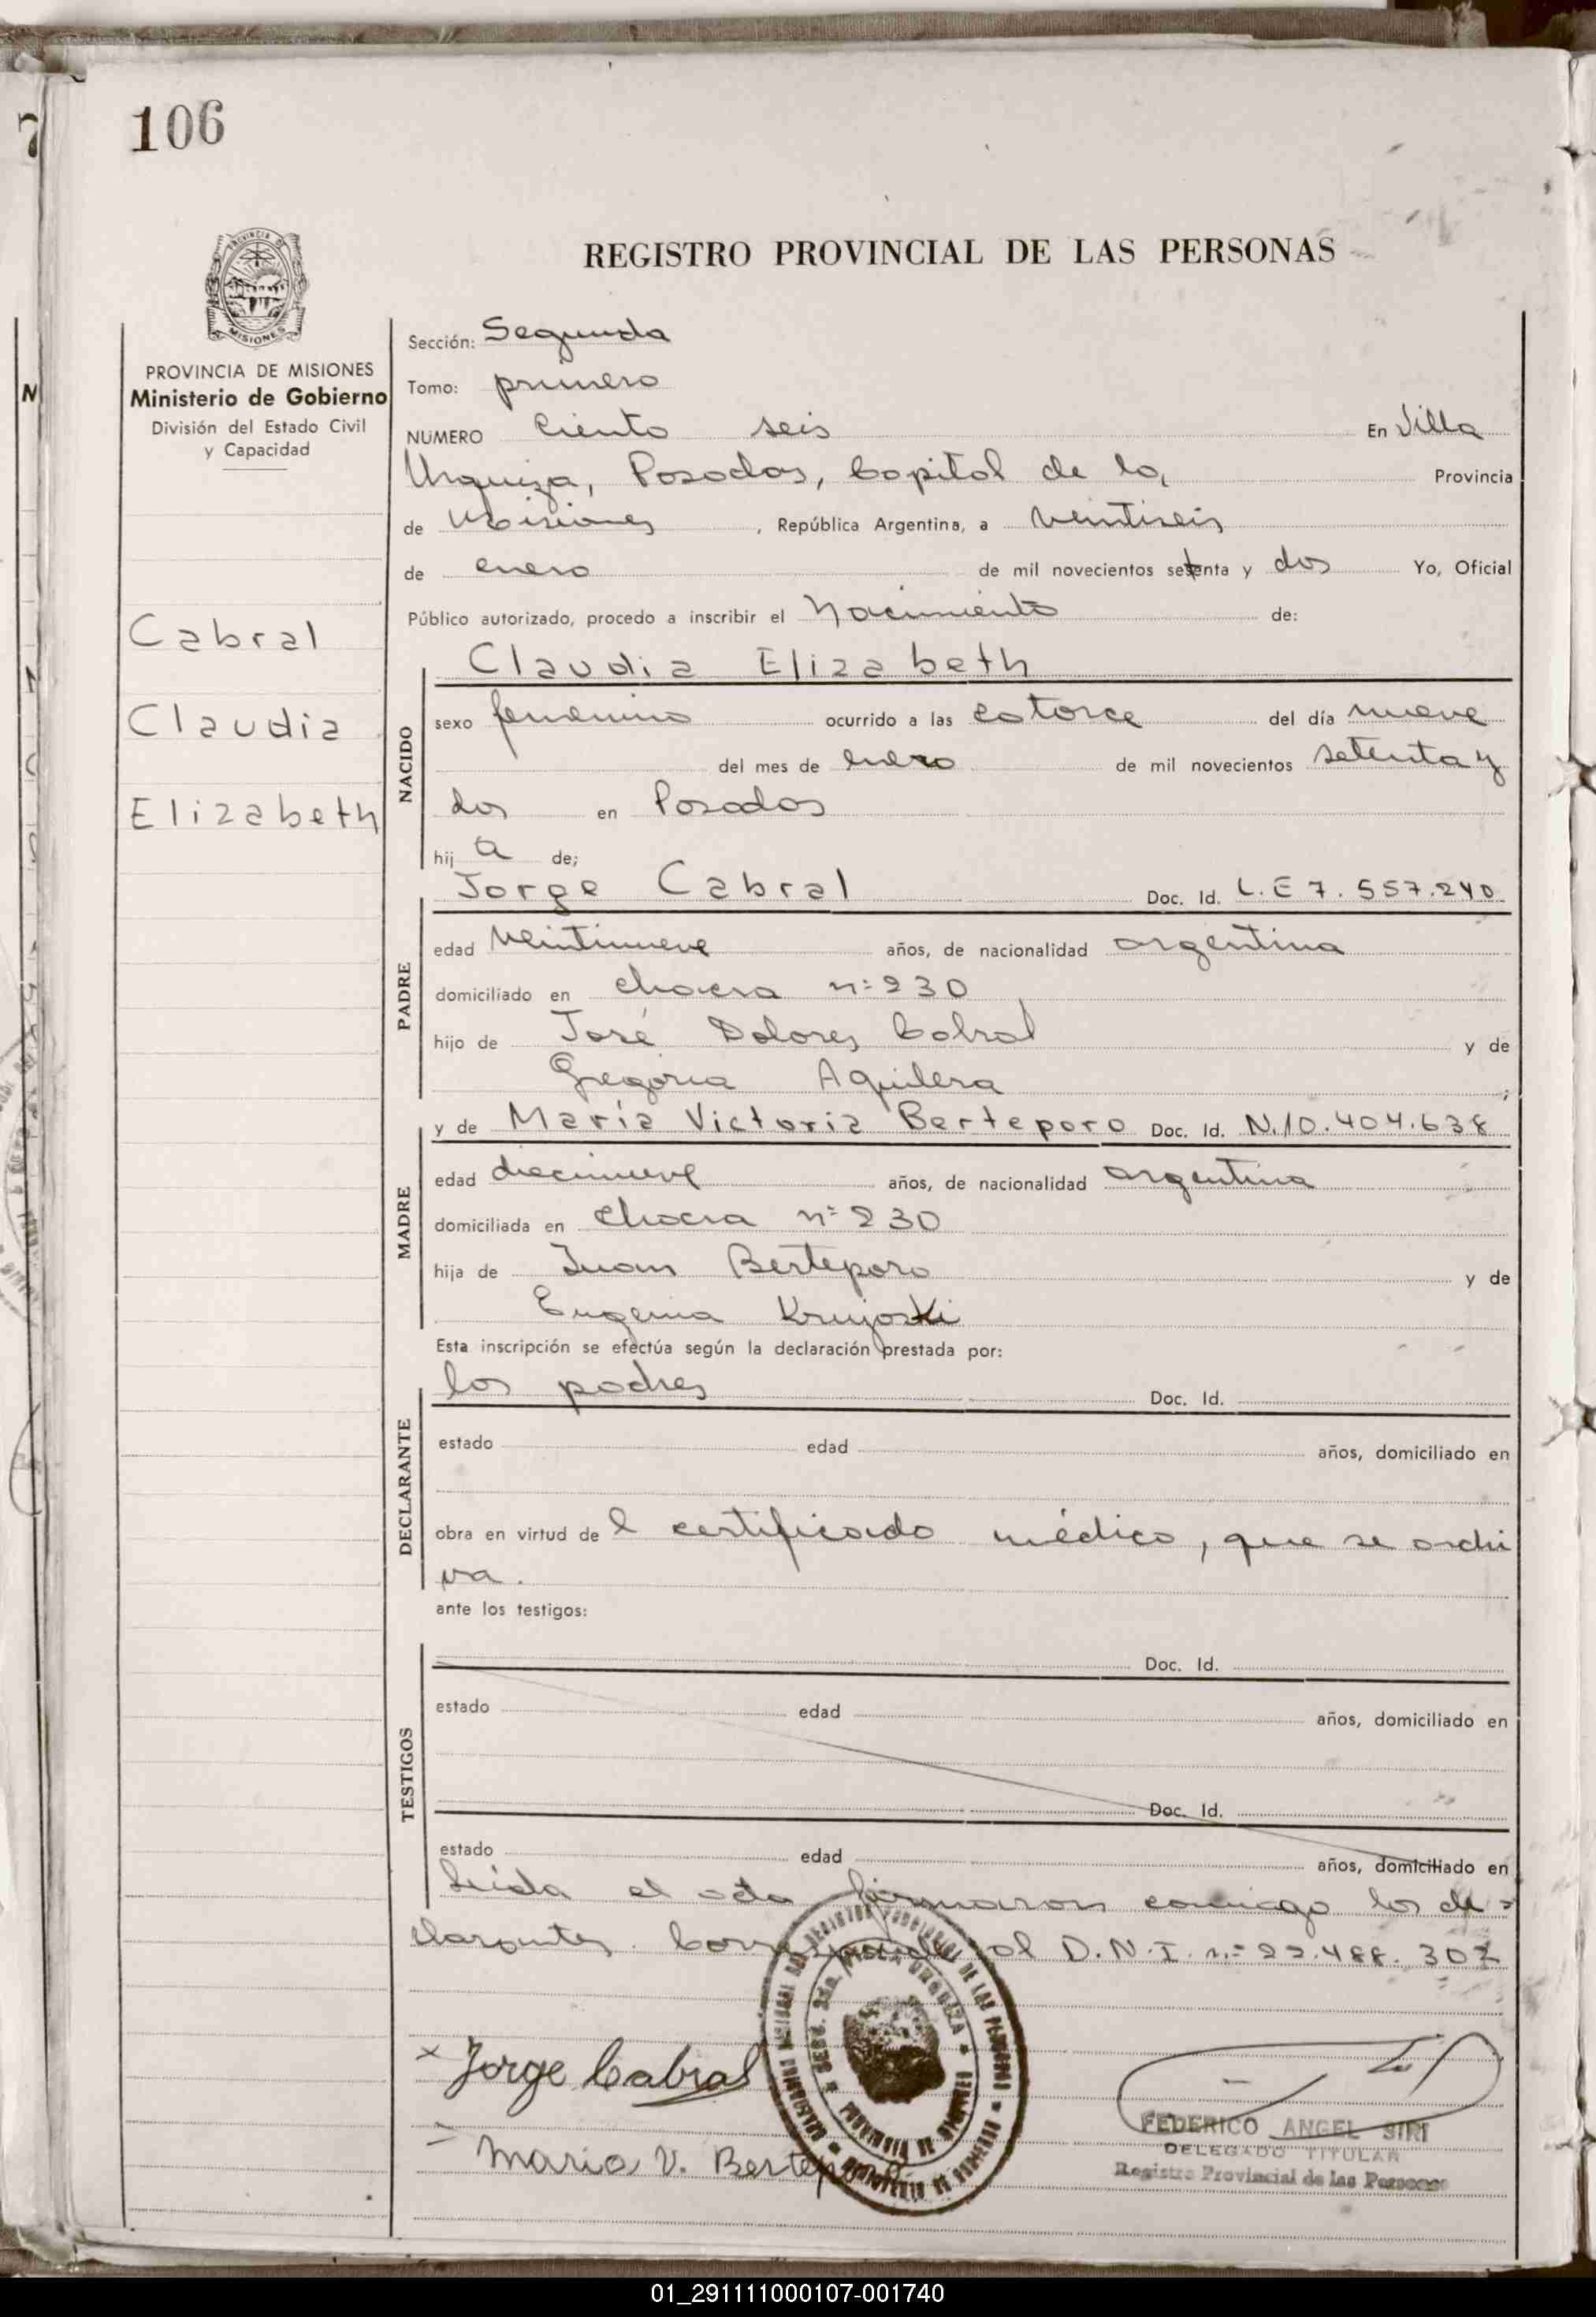 106
REGISTRO PROVINCIAL DE LAS PERSONAS
PROVINCIA DE MISIONES
PROVINCIA DE MISIONES
Ministerio de Gobierno
División del Estado Civil
y Capacidad
Cabral
Claudia
Elizabeth
Sección: Segunda
Tomo: primero
NUMERO Ciento seis En Villa
Urquiza, Posadas, Capital de la, Provincia
de Misiones, República Argentina, a veintiseis
de enero de mil novecientos setenta y dos Yo, Oficial
Público autorizado, procedo a inscribir el Nacimiento de:
NACIDO
Claudia Elizabeth
sexo femenino ocurrido a las catorce del día nueve
del mes de enero de mil novecientos setenta y
dos en Posadas
hija de;
PADRE
Jorge Cabral Doc. Id. L.E 7.557.240
edad veintinueve años, de nacionalidad argentina
domiciliado en chacra nº 230
hijo de José Dolores Cabral y de
Gregoria Aguilera;
MADRE
y de María Victoria Berteporo Doc. Id. N.10.404.638
edad diecinueve años, de nacionalidad argentina
domiciliada en chacra nº 230
hija de Juan Berteporo y de
Eugenia Krujoski
Esta inscripción se efectúa según la declaración prestada por:
DECLARANTE
los padres Doc. Id.
estado edad años, domiciliado en
obra en virtud del certificado médico, que se archi
va.
ante los testigos:
TESTIGOS
Doc. Id.
estado edad años, domiciliado en
Doc. Id.
estado edad años, domiciliado en
Leida el acta firmaron conmigo los de=
clarantes. Corresponde al D.N.I. nº 22.488.307
x Jorge Cabral
Maria V. Berteporo
FEDERICO ANGEL SIRI
DELEGADO TITULAR
Registro Provincial de las Personas
01_291111000107-001740